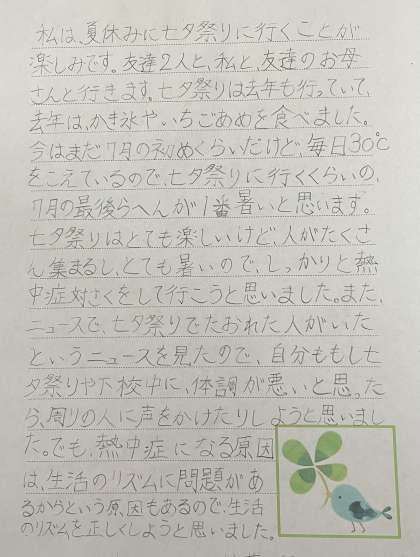 私は、夏休みに七夕祭りに行くことが
楽しみです。友達2人と、私と、友達のお母
さんと行きます。七夕祭りは去年も行っていて、
去年は、かき氷やいちごあめを食べました。
今はまだ7月の初めくらいだけど、毎日30℃
をこえているので、七夕祭りに行くくらいの、
7月の最後らへんが1番暑いと思います。
七夕祭りはとても楽しいけど、人がたくさ
ん集まるし、とても暑いので、しっかりと熱
中症対さくをして行こうと思いました。また、
ニュースで、七夕祭りでたおれた人がいた
というニュースを見たので、自分ももし七
夕祭りや下校中に、体調が悪いと思った
ら、周りの人に声をかけたりしようと思いまし
た。でも、熱中症になる原因
は、生活のリズムに問題があ
るからという原因もあるので、生活
のリズムを正しくしようと思いました。